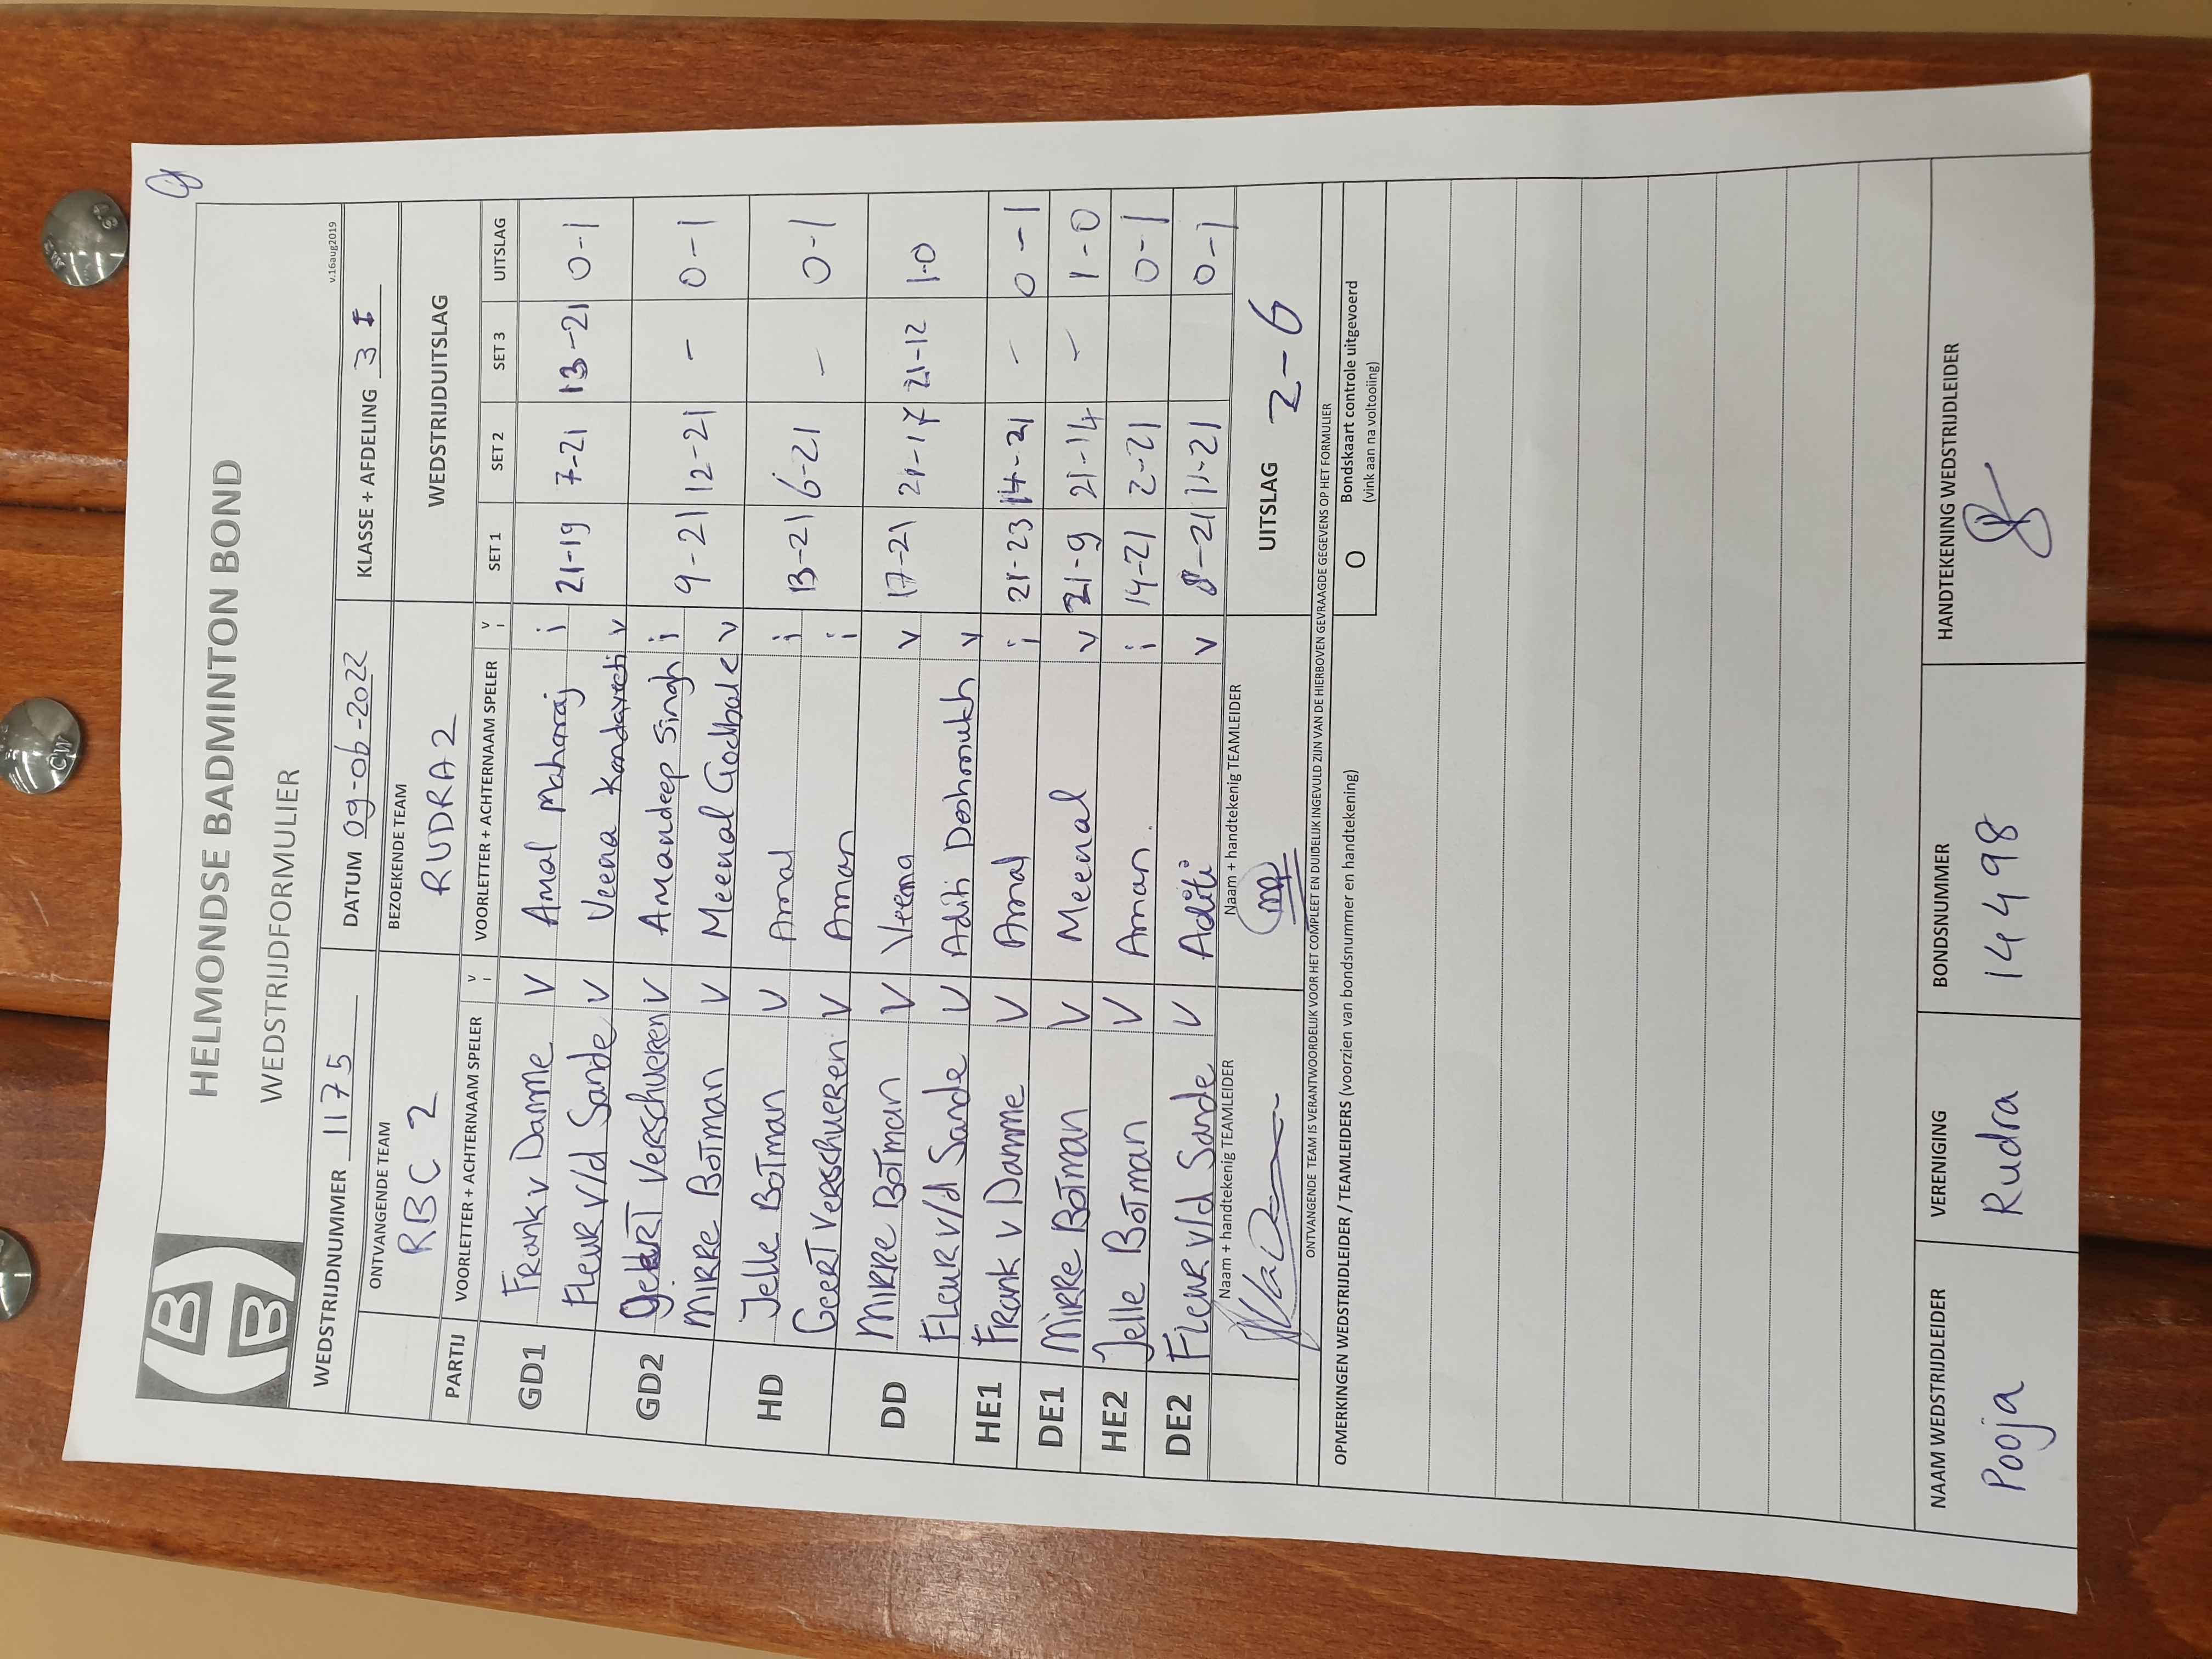 HELMONDSE BADMINTON BOND
WEDSTRIJDFORMULIER
v.16aug2019
WEDSTRIJDNUMMER 1175 DATUM 09-06-2022 KLASSE + AFDELING 3 I
ONTVANGENDE TEAM BEZOEKENDE TEAM WEDSTRIJDUITSLAG
RBC 2 RUDRA 2
PARTIJ VOORLETTER + ACHTERNAAM SPELER V I VOORLETTER + ACHTERNAAM SPELER V I SET 1 SET 2 SET 3 UITSLAG
GD1 Frank v Damme V Amal Maharaj i 21-19 7-21 13-21 0-1
Fleur v/d Sande V Veena v
GD2 Geert Verschueren V Amandeep Singh i 9-21 12-21 - 0-1
Mirre Botman V Meenal v
HD Jelle Botman V Amal i 13-21 6-21 - 0-1
Geert Verschueren V Aman i
DD Mirre Botman V Veena v 17-21 21-17 21-12 1-0
Fleur v/d Sande V Aditi Deshmukh v
HE1 Frank v Damme V Amal i 21-23 14-21 - 0-1
DE1 Mirre Botman V Meenal v 21-9 21-14 - 1-0
HE2 Jelle Botman V Aman. i 14-21 2-21 0-1
DE2 Fleur v/d Sande V Aditi v 8-21 11-21 0-1
Naam + handtekenig TEAMLEIDER Naam + handtekenig TEAMLEIDER UITSLAG 2-6
ONTVANGENDE TEAM IS VERANTWOORDELIJK VOOR HET COMPLEET EN DUIDELIJK INGEVULD ZIJN VAN DE HIERBOVEN GEVRAAGDE GEGEVENS OP HET FORMULIER
OPMERKINGEN WEDSTRIJDLEIDER / TEAMLEIDERS (voorzien van bondsnummer en handtekening) O Bondskaart controle uitgevoerd
(vink aan na voltooiing)
NAAM WEDSTRIJDLEIDER VERENIGING BONDSNUMMER HANDTEKENING WEDSTRIJDLEIDER
Pooja Rudra 14498